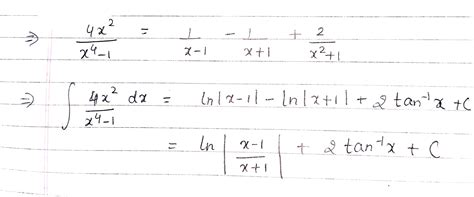 ⇒ 4x²/(x⁴-1) = 1/(x-1) - 1/(x+1) + 2/(x²+1)
⇒ ∫ 4x²/(x⁴-1) dx = ln|x-1| - ln|x+1| + 2 tan⁻¹x + C
= ln |(x-1)/(x+1)| + 2 tan⁻¹x + C